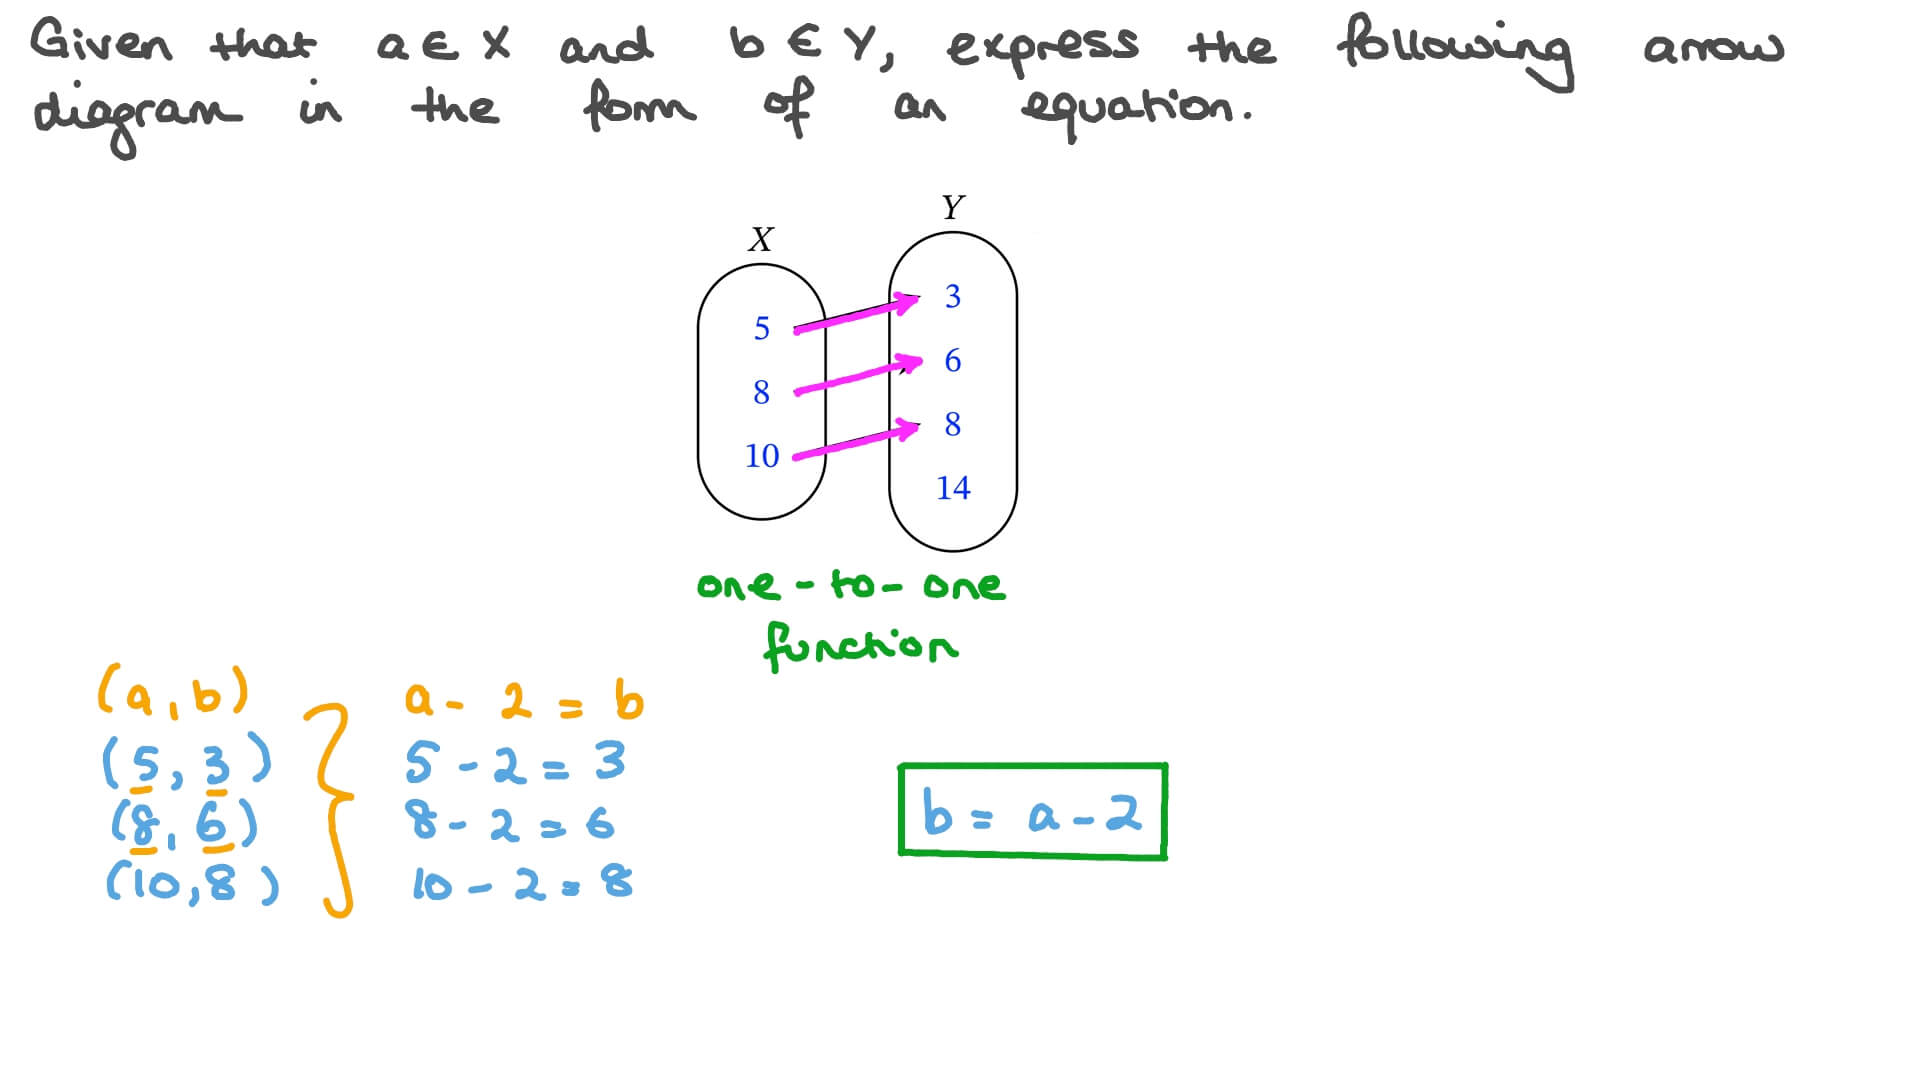 Given that a ∈ X and b ∈ Y, express the following arrow
diagram in the form of an equation.
X
Y
5
8
10
3
6
8
14
one-to-one
function
(a,b)
(5,3)
(8,6)
(10,8)
a - 2 = b
5 - 2 = 3
8 - 2 = 6
10 - 2 = 8
b = a - 2